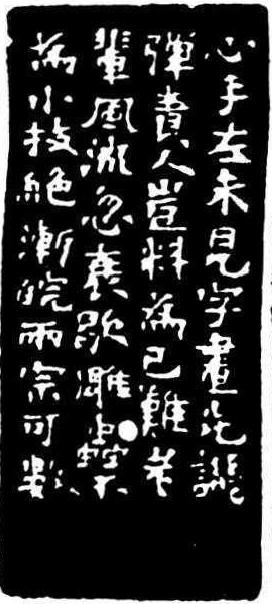 心手左未見字畫先譏
彈責人豈料為己難老
輩風流忽衰歇雕虫
為小技絕漸皖兩宗可數